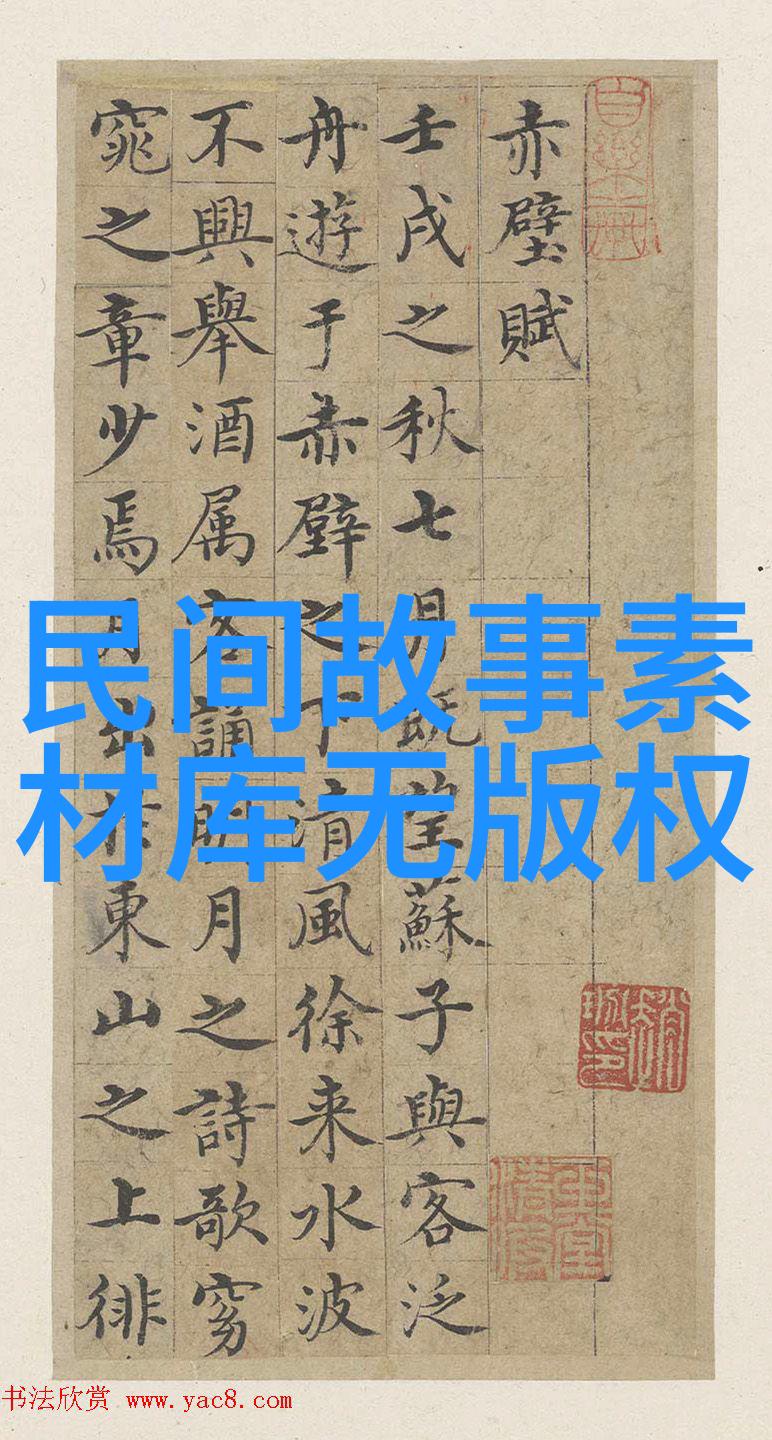 赤壁賦
壬戌之秋七月既望蘇子與客泛
舟遊于赤壁之下清風徐来水波
不興舉酒属客誦明月之詩歌窈
窕之章少焉月出於東山之上徘
民间故事素
材库无版权
书法欣赏 www.yac8.com